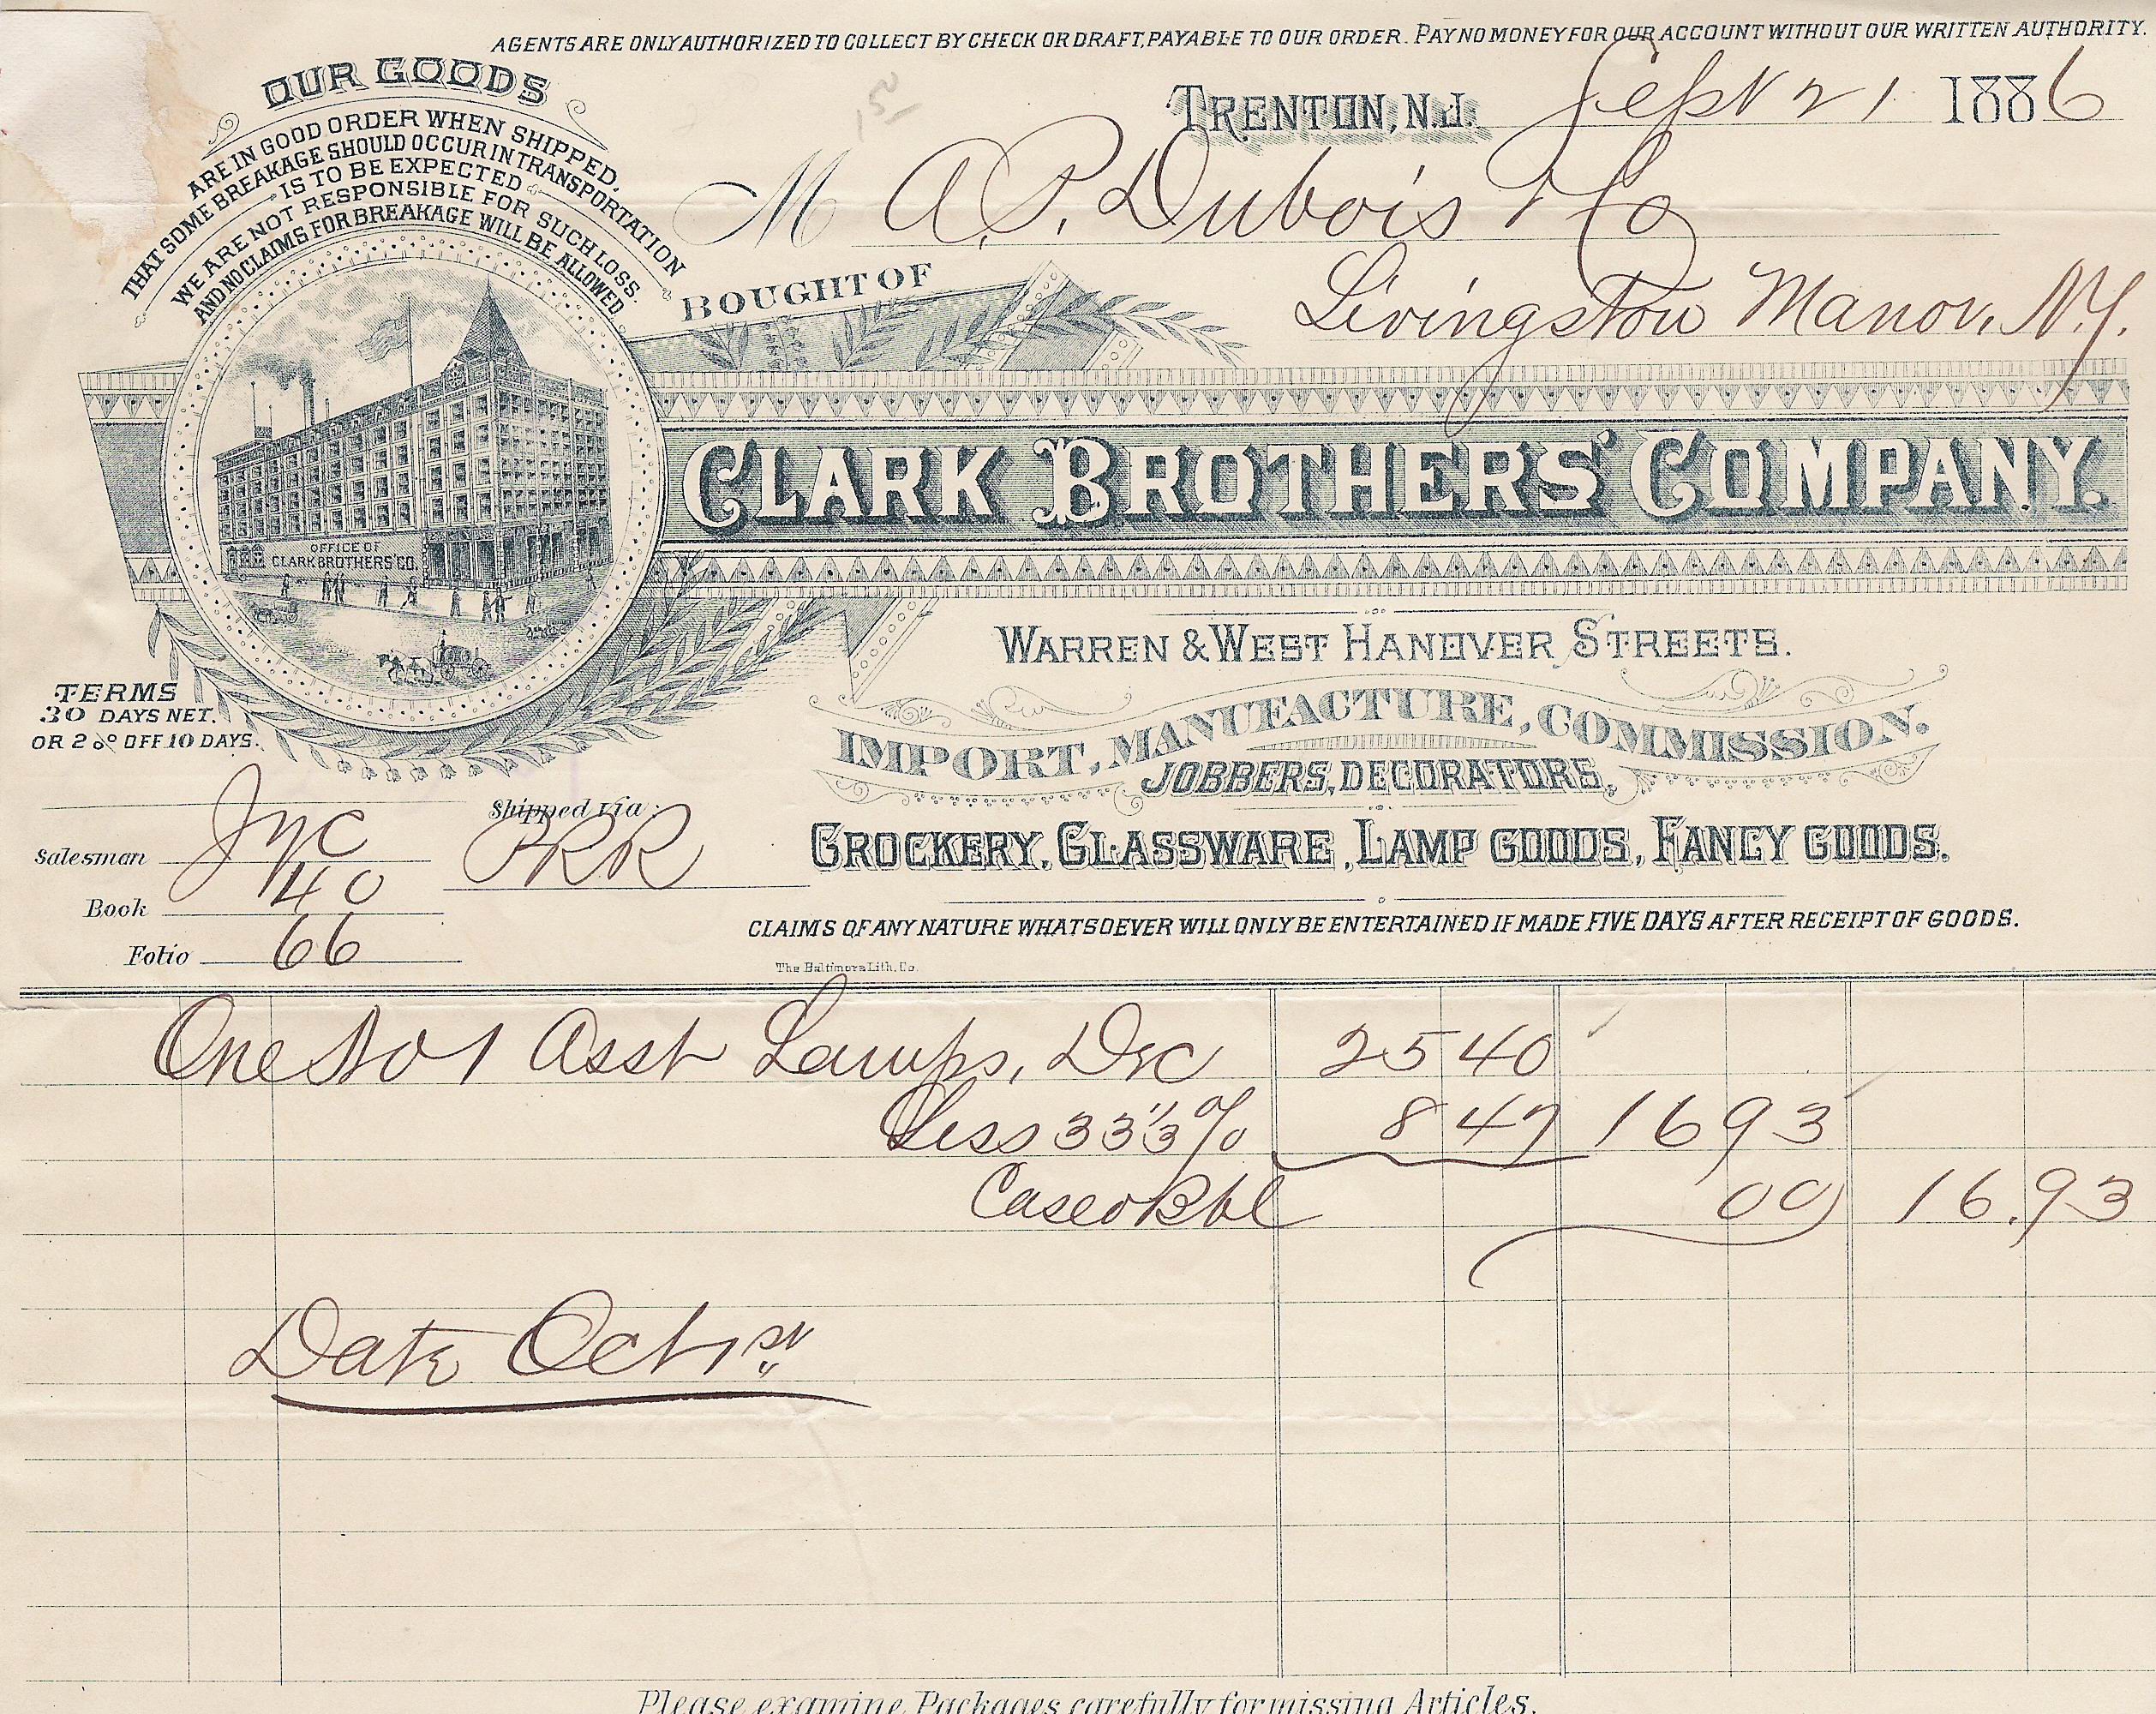 AGENTS ARE ONLY AUTHORIZED TO COLLECT BY CHECK OR DRAFT, PAYABLE TO OUR ORDER. PAY NO MONEY FOR OUR ACCOUNT WITHOUT OUR WRITTEN AUTHORITY.
OUR GOODS
ARE IN GOOD ORDER WHEN SHIPPED.
THAT SOME BREAKAGE SHOULD OCCUR IN TRANSPORTATION
IS TO BE EXPECTED
WE ARE NOT RESPONSIBLE FOR SUCH LOSS.
AND NO CLAIMS FOR BREAKAGE WILL BE ALLOWED
1.50
TRENTON, N.J. Sept 21 1886
M A. P. Dubois & Co
Livingston Manor, N.Y.
BOUGHT OF
CLARK BROTHERS' COMPANY.
OFFICE OF
CLARK BROTHERS' CO.
WARREN & WEST HANOVER STREETS.
IMPORT, MANUFACTURE, COMMISSION.
JOBBERS, DECORATORS,
CROCKERY, GLASSWARE, LAMP GOODS, FANCY GOODS.
TERMS
30 DAYS NET.
OR 2 % OFF 10 DAYS.
Shipped via: PRR
Salesman
Book 40
Folio 66
CLAIMS OF ANY NATURE WHATSOEVER WILL ONLY BE ENTERTAINED IF MADE FIVE DAYS AFTER RECEIPT OF GOODS.
The Baltimore Lith. Co.
One No 1 Asst Lamps, Dec 25 40
Less 33 1/3 % 8 47 16 93
Case o Bbl 00 16.93
Date Oct 1st
Please examine Packages carefully for missing Articles.